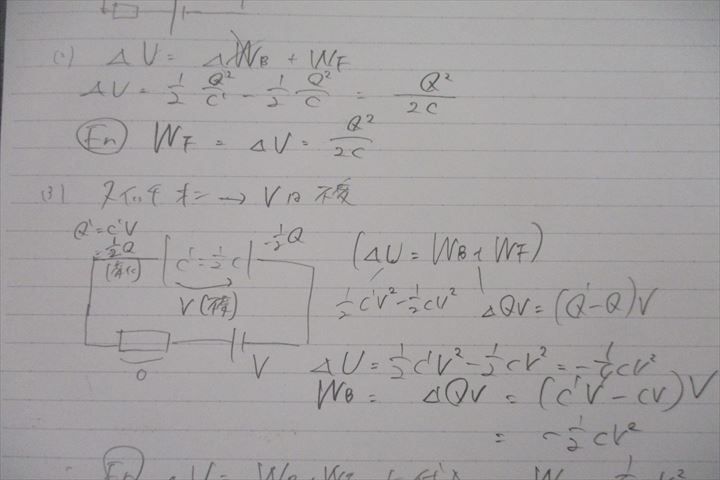 ΔU = ΔW_B + W_F
ΔU = 1/2 Q²/C' - 1/2 Q²/C = Q²/2C
En W_F = ΔU = Q²/2C
(3) スイッチオン → Vは不変
Q' = C'V
= 1/2 Q
C' = 1/2 C
-1/2 Q
V (不変)
0
V
(ΔU = W_B + W_F)
1/2 C'V² - 1/2 CV² ΔQV = (Q' - Q)V
ΔU = 1/2 C'V² - 1/2 CV² = -1/4 CV²
W_B = ΔQV = (C'V - CV)V
= -1/2 CV²
En